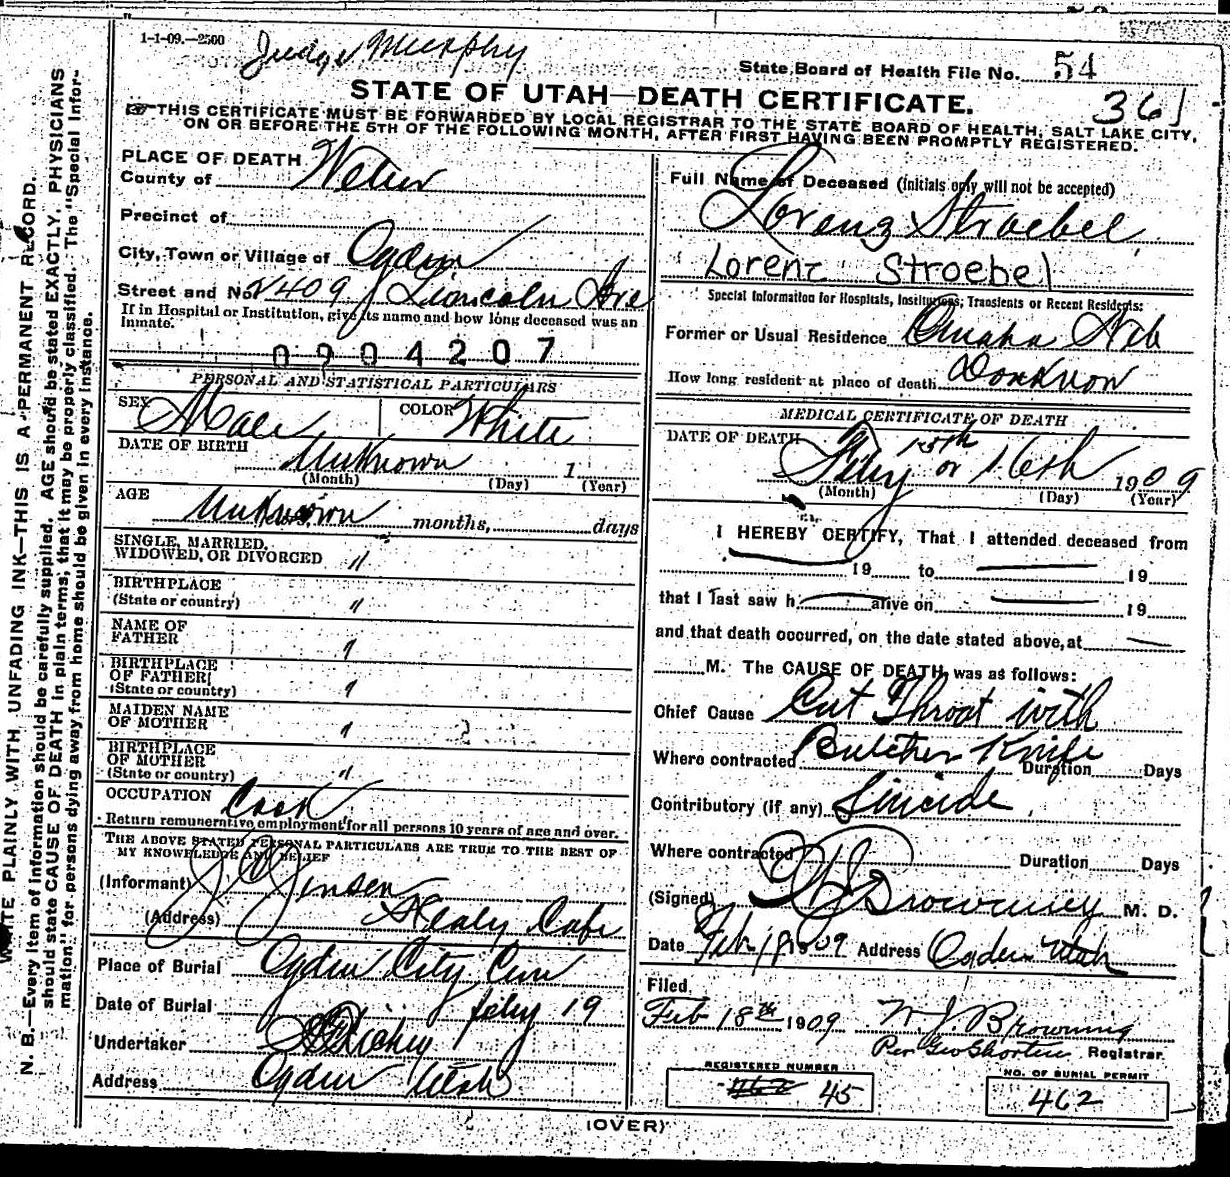 1-1-09.—2500
Judge Murphy
State Board of Health File No. 54
361
STATE OF UTAH—DEATH CERTIFICATE.
☞THIS CERTIFICATE MUST BE FORWARDED BY LOCAL REGISTRAR TO THE STATE BOARD OF HEALTH, SALT LAKE CITY,
ON OR BEFORE THE 5TH OF THE FOLLOWING MONTH, AFTER FIRST HAVING BEEN PROMPTLY REGISTERED.
N. B.—Every item of information should be carefully supplied. AGE should be stated EXACTLY. PHYSICIANS
should state CAUSE OF DEATH in plain terms, that it may be properly classified. The "Special Infor-
mation" for persons dying away from home should be given in every instance.
WRITE PLAINLY, WITH UNFADING INK—THIS IS A PERMANENT RECORD.
PLACE OF DEATH
County of Weber
Precinct of
City, Town or Village of Ogden
Street and No. 2409 Lincoln Ave
If in Hospital or Institution, give its name and how long deceased was an
inmate.
0904207
PERSONAL AND STATISTICAL PARTICULARS
SEX Male COLOR White
DATE OF BIRTH Unknown 1
(Month) (Day) (Year)
AGE
Unknown months, days
SINGLE, MARRIED,
WIDOWED, OR DIVORCED "
BIRTHPLACE
(State or country) "
NAME OF
FATHER "
BIRTHPLACE
OF FATHER
(State or country) "
MAIDEN NAME
OF MOTHER "
BIRTHPLACE
OF MOTHER
(State or country) "
OCCUPATION Cook
Return remunerative employment for all persons 10 years of age and over.
THE ABOVE STATED PERSONAL PARTICULARS ARE TRUE TO THE BEST OF
MY KNOWLEDGE AND BELIEF
(Informant) Jensen
(Address) Healy Cafe
Place of Burial Ogden City Cem
Date of Burial Feby 19
Undertaker Richey
Address Ogden Utah
Full Name of Deceased (initials only will not be accepted)
Lorenz Stroebel
Lorenz Stroebel
Special Information for Hospitals, Institutions, Transients or Recent Residents:
Former or Usual Residence Omaha Neb
How long resident at place of death Dont know
MEDICAL CERTIFICATE OF DEATH
DATE OF DEATH
Feby 15th or 16th 1909
(Month) (Day) (Year)
I HEREBY CERTIFY, That I attended deceased from
19 to 19
that I last saw h alive on 19
and that death occurred, on the date stated above, at
M. The CAUSE OF DEATH was as follows:
Chief Cause Cut Throat with
Where contracted Butcher Knife Duration Days
Contributory (if any) Suicide
Where contracted Duration Days
(Signed) Browning M. D.
Date Feb 18 1909 Address Ogden Utah
Filed
Feb 18th 1909 W. J. Browning
Per Geo Shorten Registrar
REGISTERED NUMBER
462 45
NO. OF BURIAL PERMIT
462
(OVER)